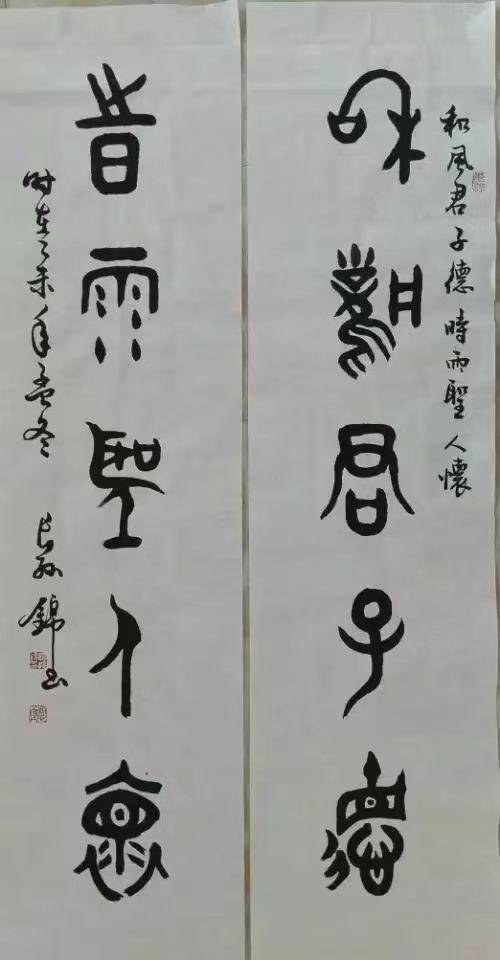 和風君子德 時雨聖人懷
和風君子德
旹雨聖人懷
时在乙未年孟冬 长孙錦书